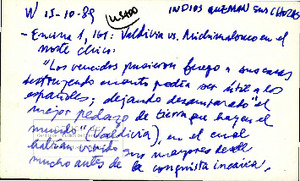 W 15-10-89 USADO INDIOS QUEMAN SUS CHOZAS
- Encina 1, 101: Valdivia vs. Michimalonco en el
norte chico:
"Los vencidos pusieron fuego a sus casas
destruyendo cuanto podía ser útil a los
españoles; dejando desamparado "el
mejor pedazo de tierra que hay en el
mundo" (Valdivia), en el cual
habían vivido sus mayores desde
mucho antes de la conquista incaica.